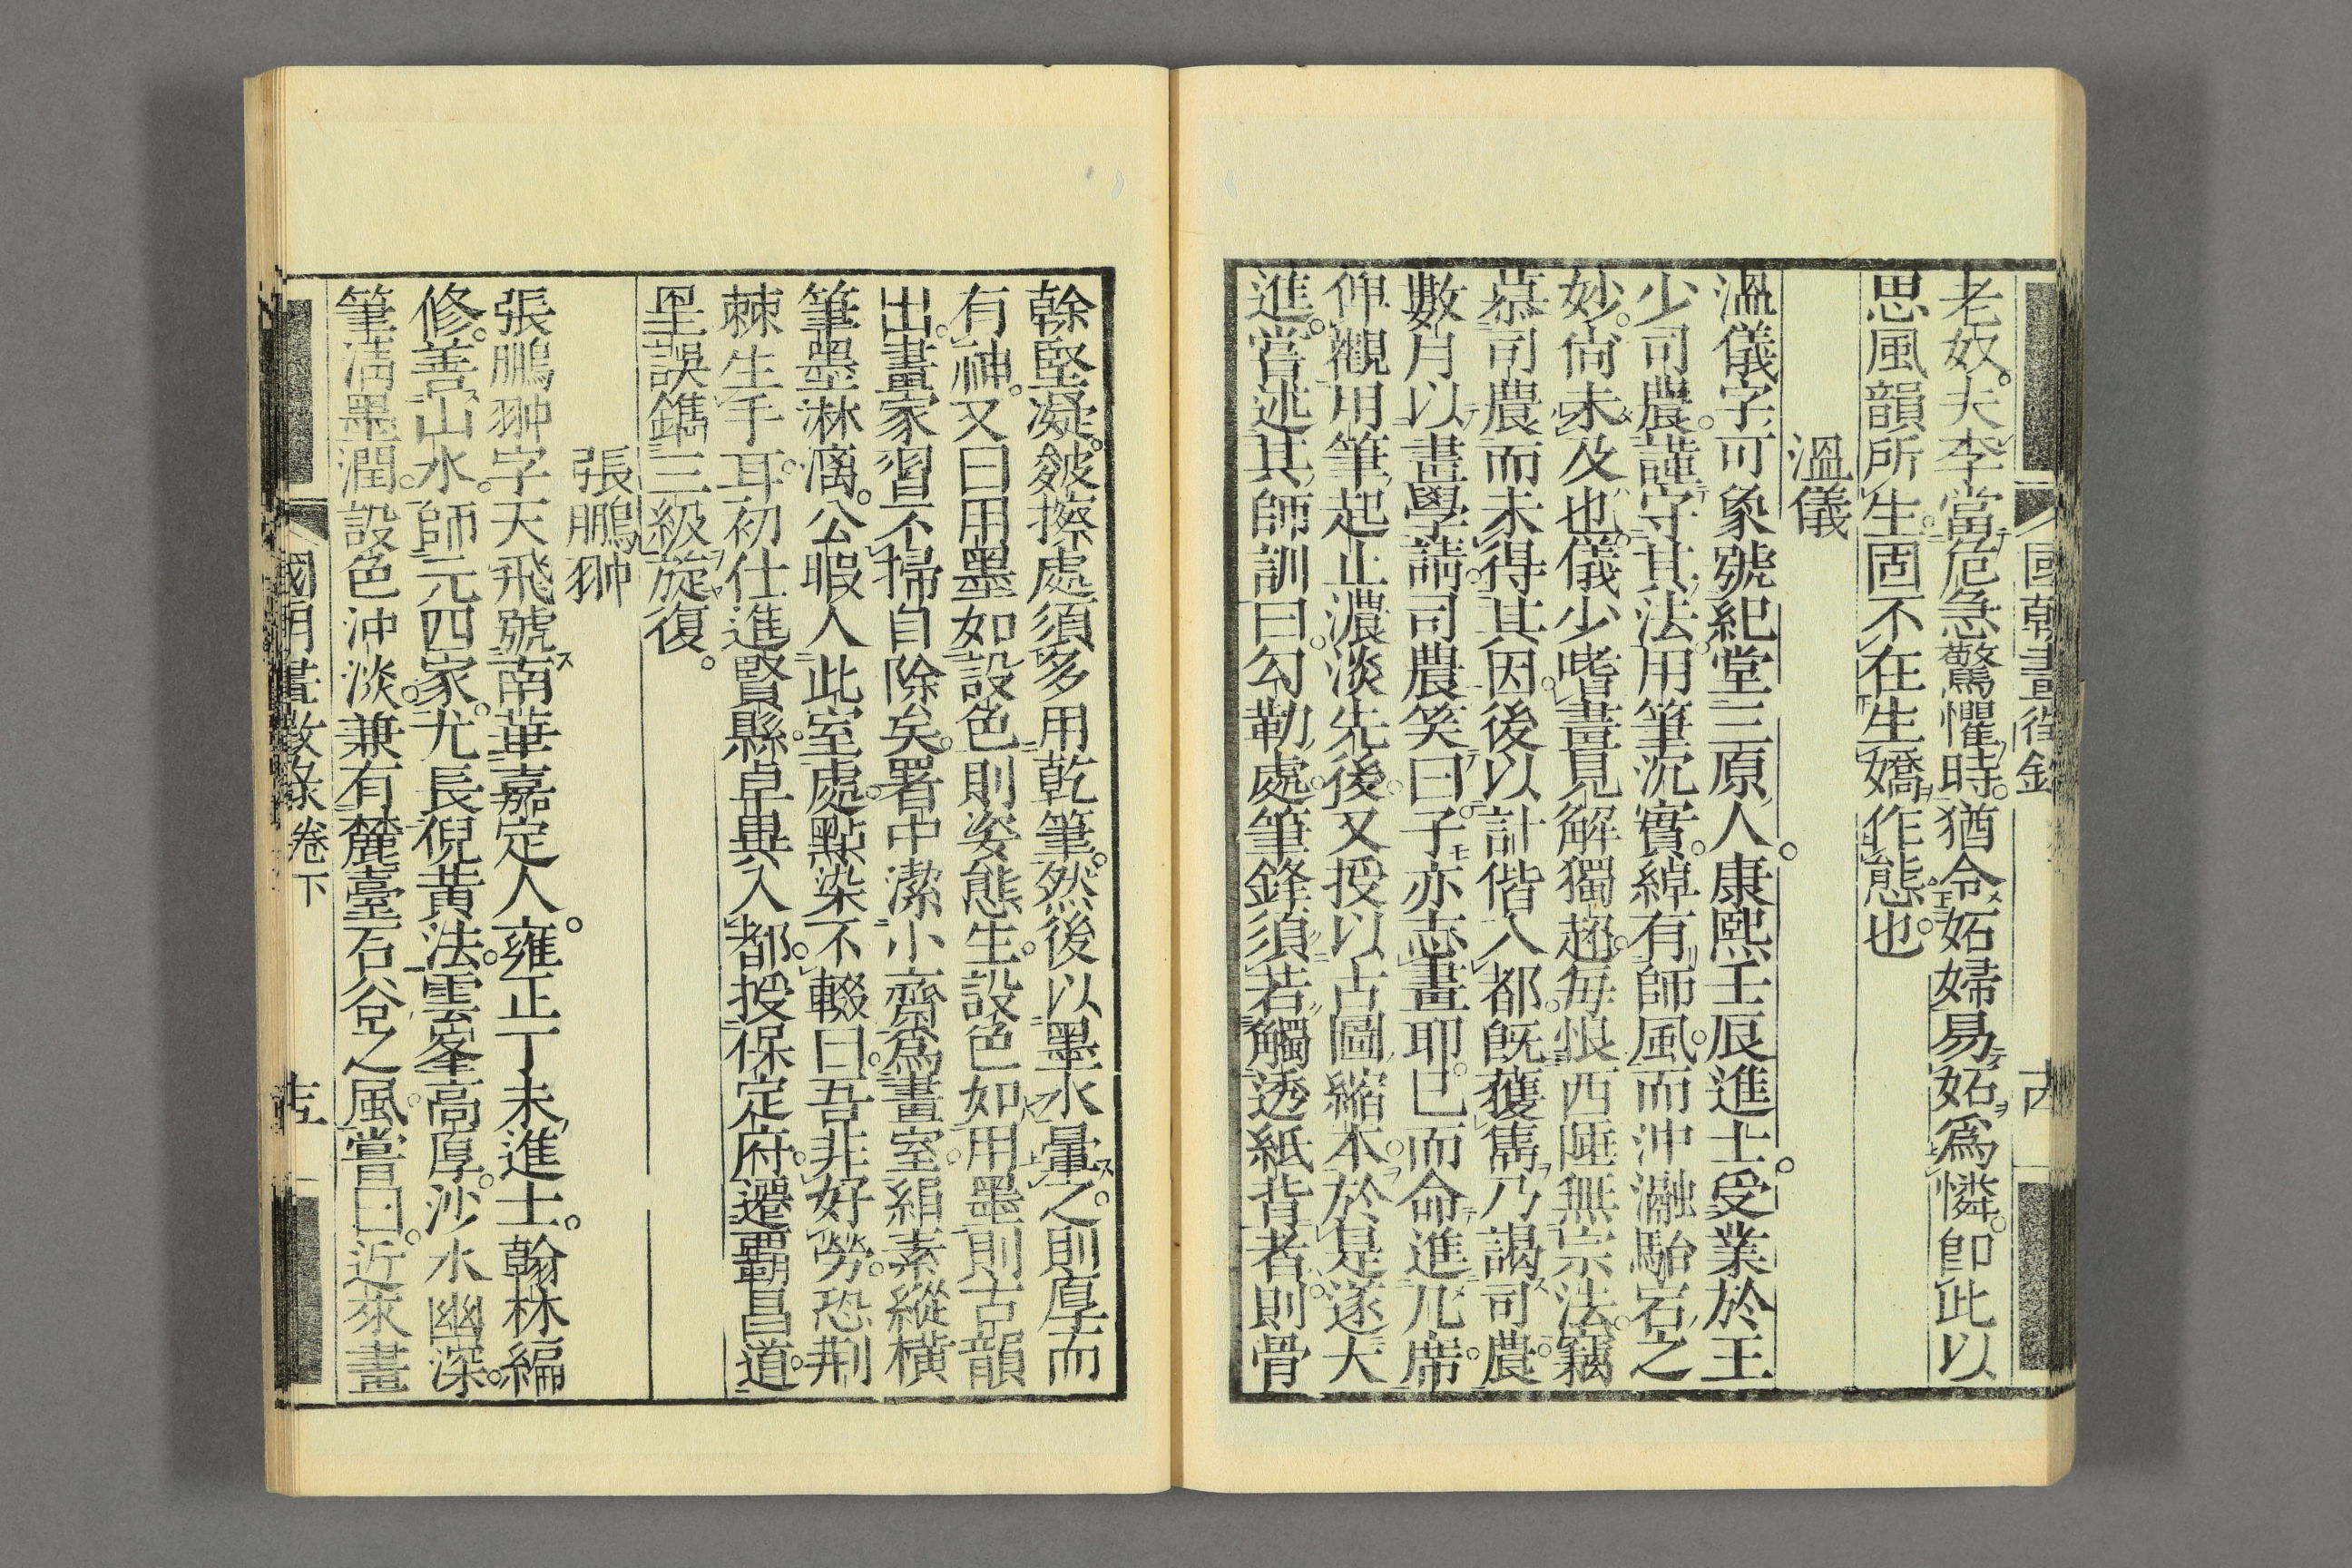 國朝畫徴錄
老奴。夫李當危急驚懼時。猶令妬婦易妬爲憐。卽此以
思風韻所生。固不在生嬌作態也。
溫儀
溫儀字可象號紀堂三原人。康熙壬辰進士。受業於王
少司農。謹守其法。用筆沉實。綽有師風。而沖瀜駘宕之
妙。尙未及也。儀少嗜畫見解獨超。每恨西陲無宗法。竊
慕司農而未得其因。後以計偕入都。旣獲雋乃謁司農。
數月以畫學請。司農笑曰。子亦志畫耶。已而命進几席。
俾觀用筆起止濃淡先後。又授以古圖縮本。於是遂大
進。嘗述其師訓曰。勾勒處。筆鋒須若觸透紙背者。則骨
幹堅凝。皴擦處須多用乾筆。然後以墨水暈之。則厚而
有神。又曰用墨如設色則姿態生。設色如用墨則古韻
出。畫家習不掃自除矣。署中潔小齋爲畫室。絹素縱橫
筆墨淋漓。公暇人此室處。點染不輟曰。吾非好勞。恐荆
棘生手耳。初仕進賢縣。卓異入都。授保定府。遷覇昌道。
罣誤鐫三級旋復。
張鵬翀
張鵬翀字天飛號南華嘉定人。雍正丁未進士。翰林編
修。善山水。師元四家。尤長倪黃法。雲峯高厚。沙水幽深。
筆淸墨潤。設色沖淡。兼有麓臺石谷之風。嘗曰。近來畫
國朝畫徴錄 卷下